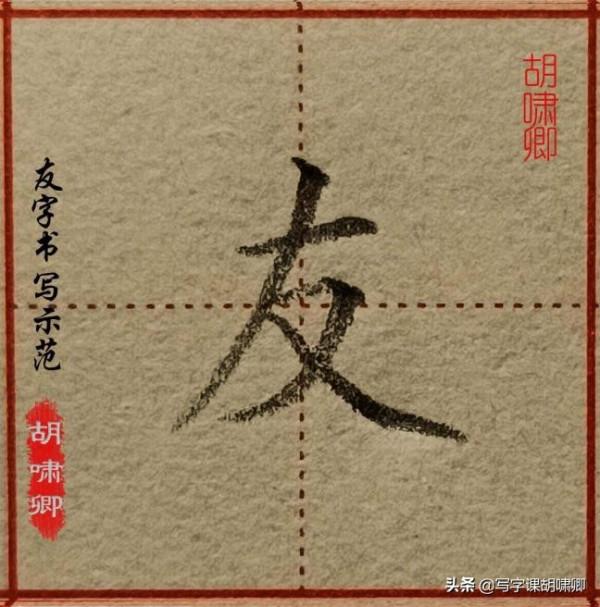 胡啸卿
友字书写示范
友
胡啸卿
头条 @写字课胡啸卿